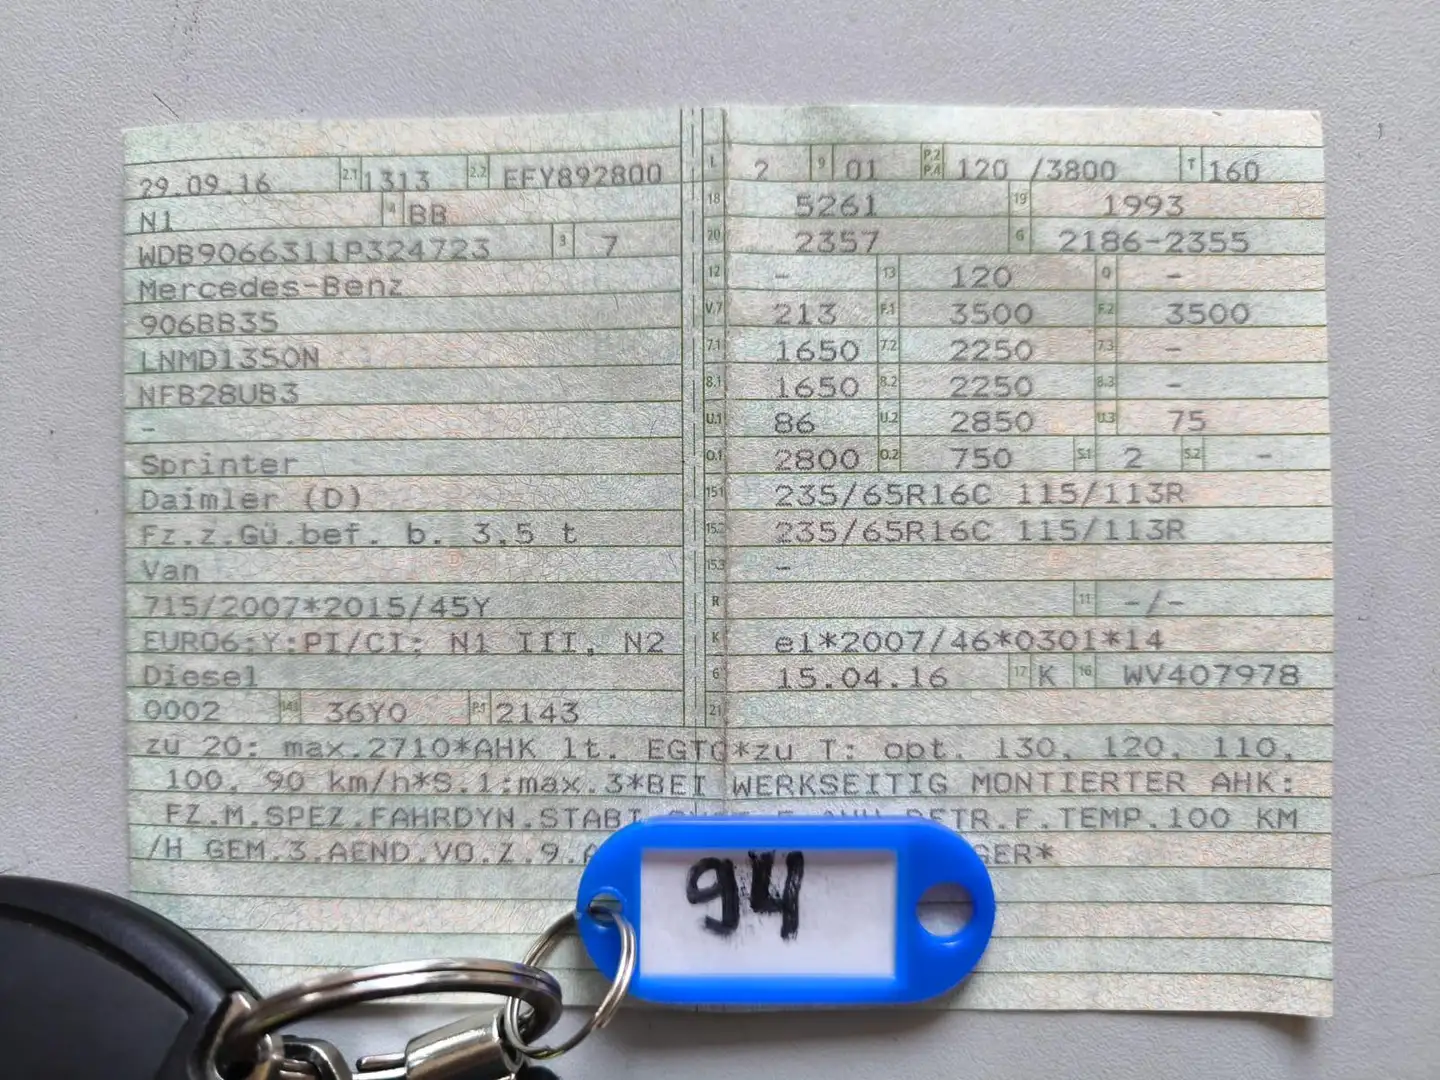 29.09.16 2.1 1313 2.2 EFY892800 L 2 9 01 P.2 P.4 120 /3800 T 160
N1 4 BB 18 5261 19 1993
WDB9066311P324723 3 7 20 2357 G 2186-2355
Mercedes-Benz 12 - 13 120 Q -
906BB35 V.7 213 F.1 3500 F.2 3500
LNMD1350N 7.1 1650 7.2 2250 7.3 -
NFB28UB3 8.1 1650 8.2 2250 8.3 -
- U.1 86 U.2 2850 U.3 75
Sprinter O.1 2800 O.2 750 S.1 2 S.2 -
Daimler (D) 15.1 235/65R16C 115/113R
Fz.z.Gü.bef. b. 3.5 t 15.2 235/65R16C 115/113R
Van 15.3 -
715/2007*2015/45Y R 11 -/-
EURO6;Y:PI/CI; N1 III, N2 K e1*2007/46*0301*14
Diesel 6 15.04.16 17 K 16 WV407978
0002 14.1 36Y0 P.1 2143 21
zu 20: max.2710*AHK lt. EGTG*zu T: opt. 130, 120, 110,
100, 90 km/h*S.1:max.3*BEI WERKSEITIG MONTIERTER AHK:
FZ.M.SPEZ.FAHRDYN.STABI BETR.F.TEMP.100 KM
/H GEM.3.AEND.VO.Z.9.A GER*
94